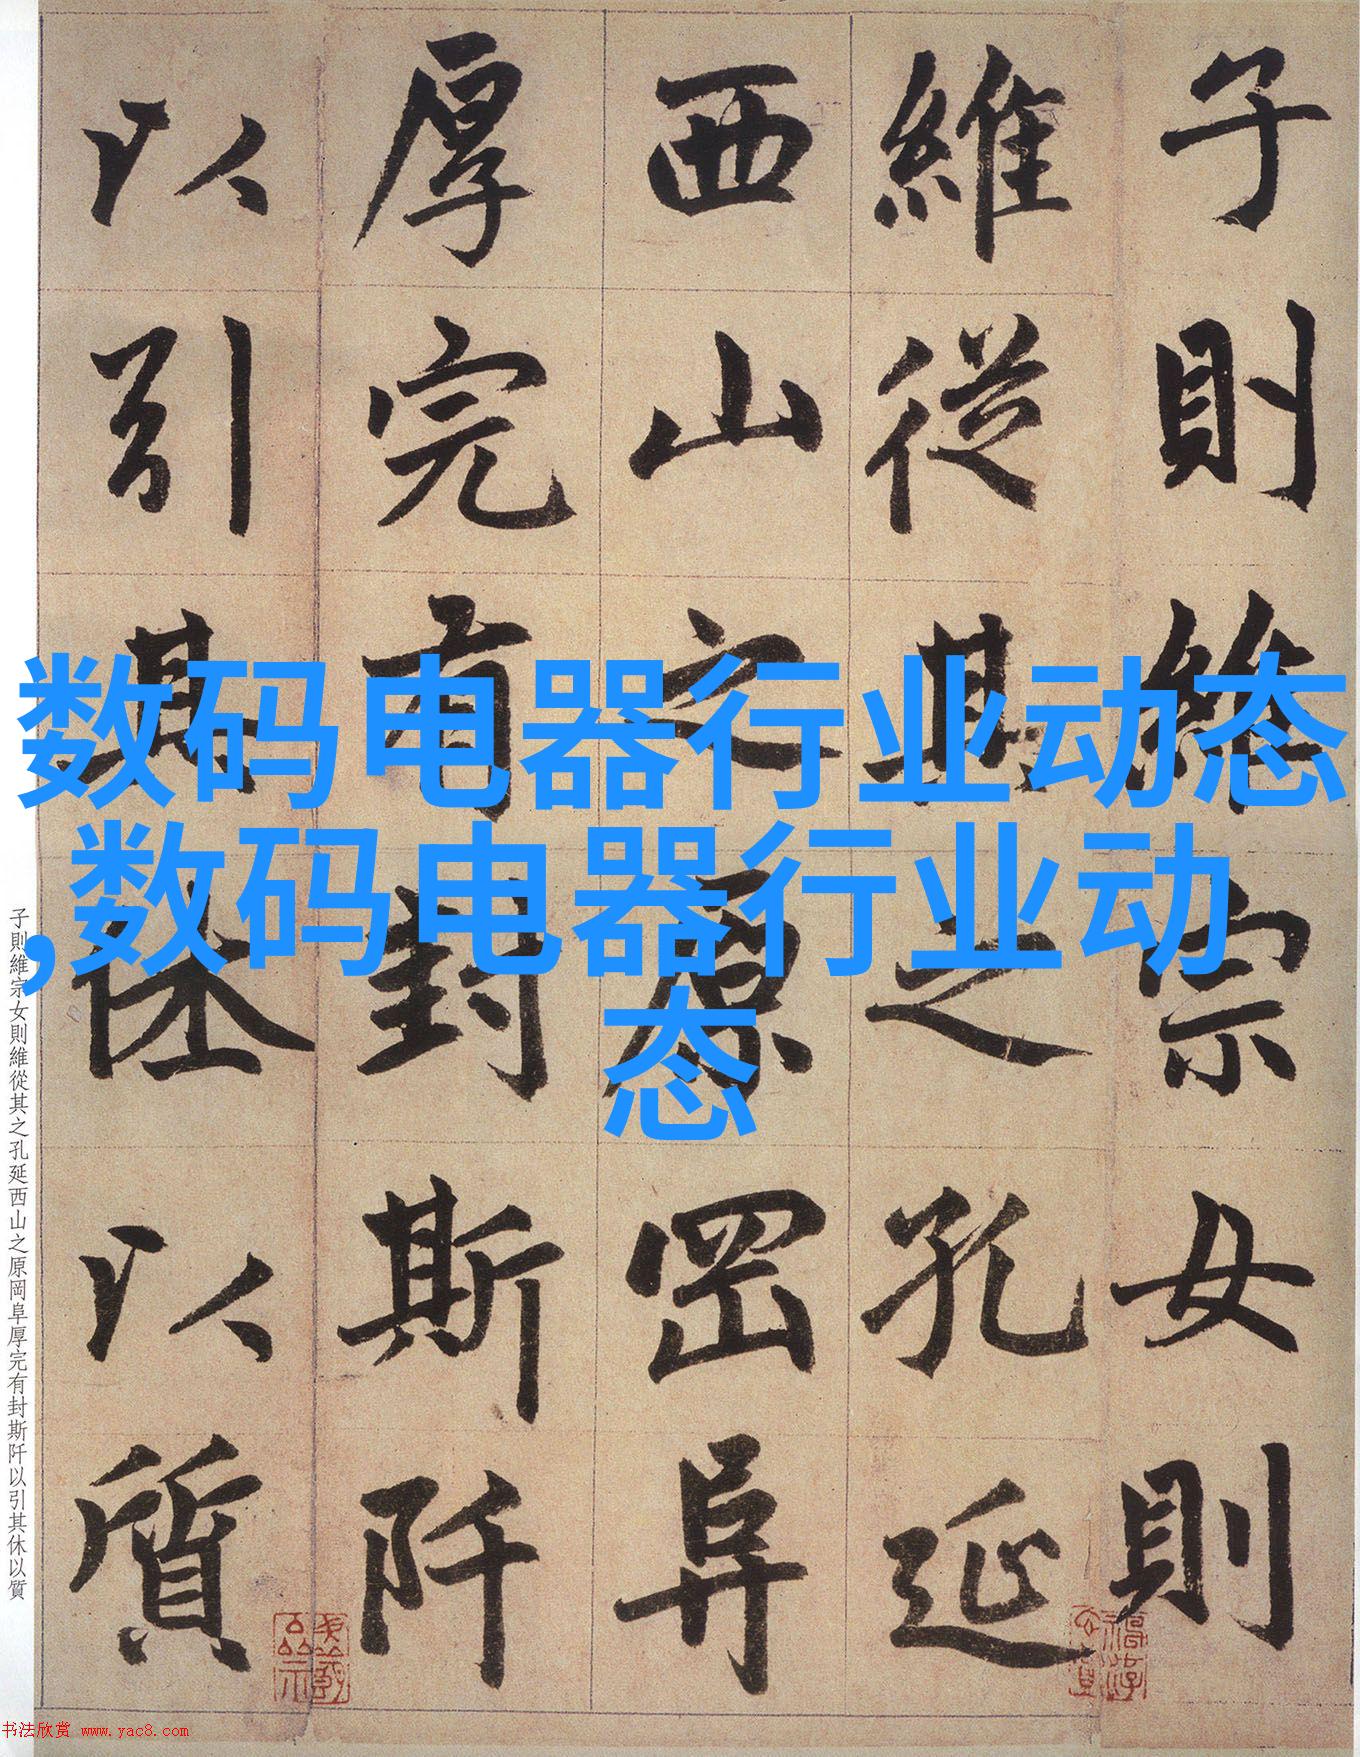 子則維宗女則
維從其之孔延
西山之原岡阜
厚完有封斯阡
以引其休以質
数码电器行业动态
,数码电器行业动
态
子則維宗女則維從其之孔延西山之原岡阜厚完有封斯阡以引其休以質
书法欣赏 www.yac8.com